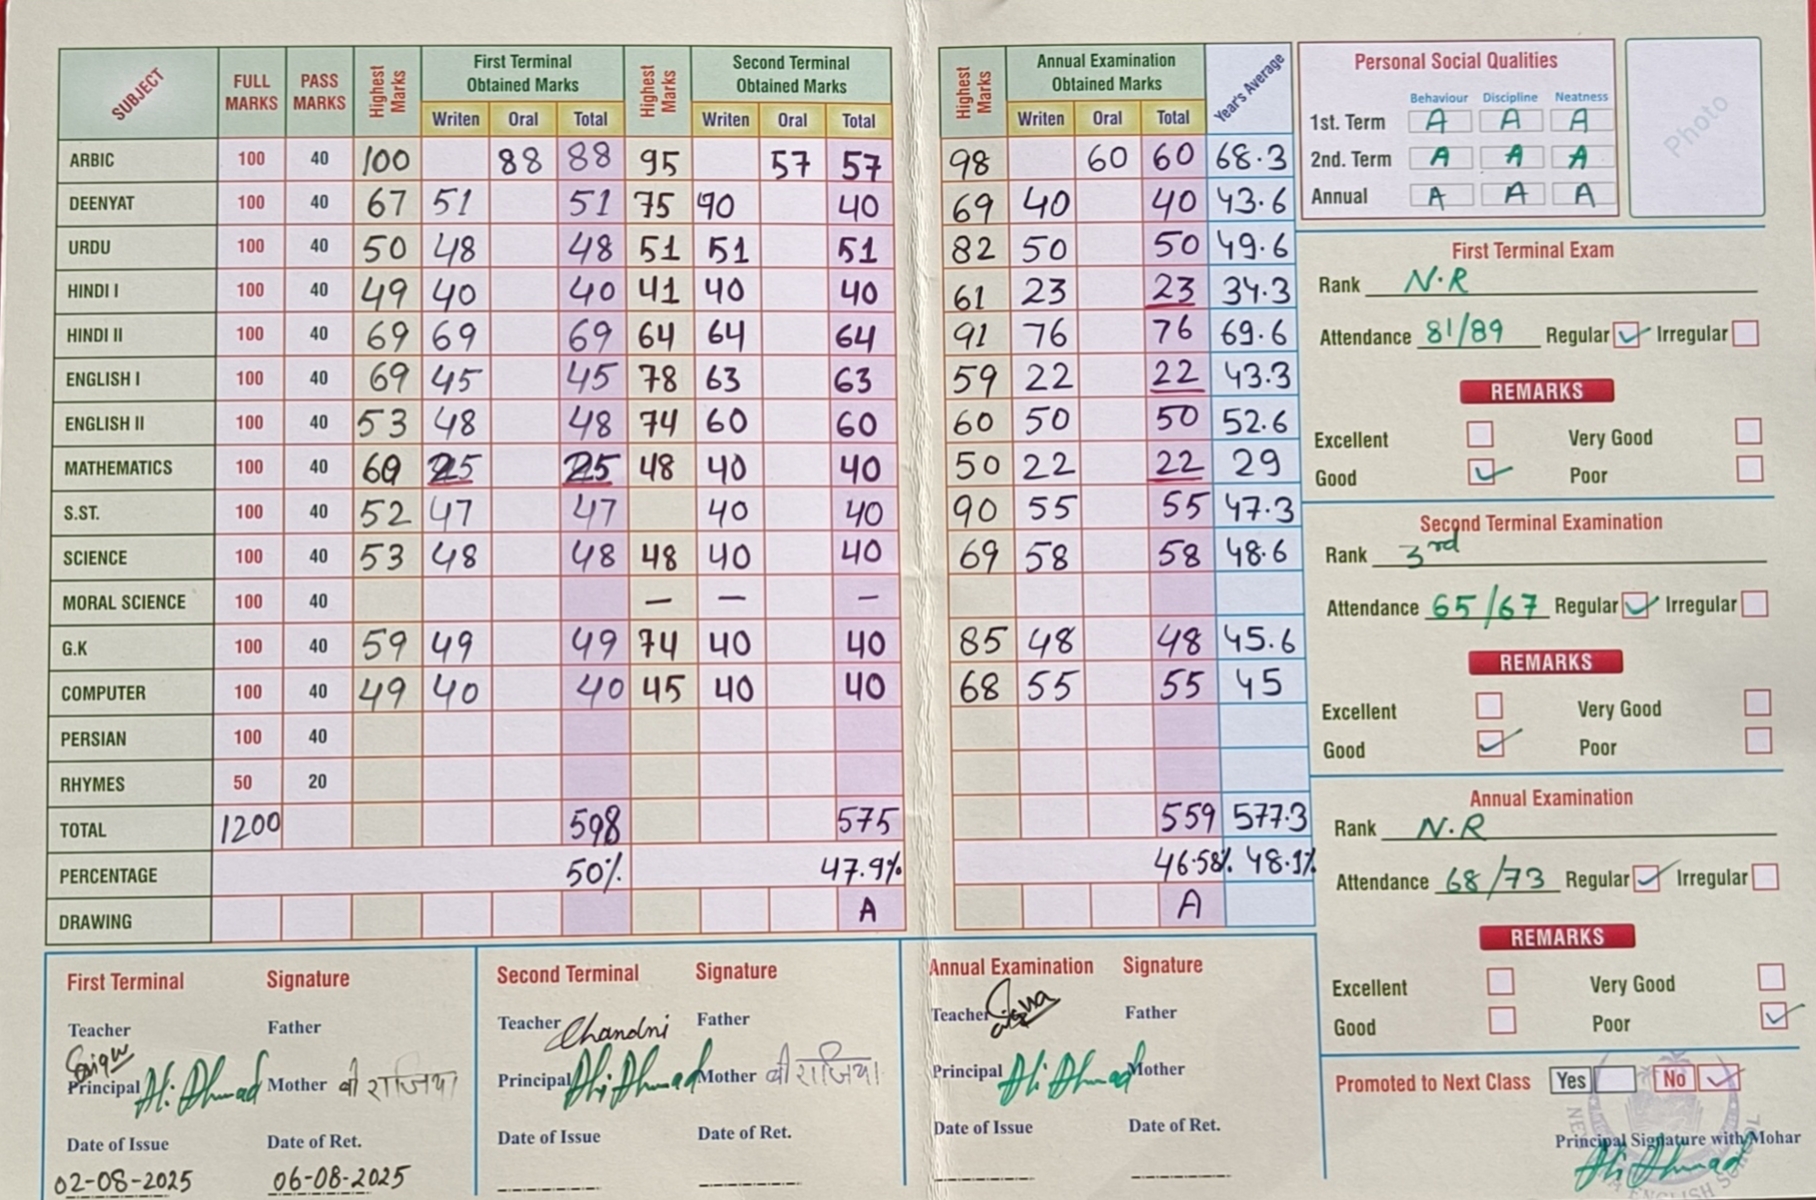 SUBJECT FULL MARKS PASS MARKS Highest Marks First Terminal Obtained Marks Highest Marks Second Terminal Obtained Marks Highest Marks Annual Examination Obtained Marks Year's Average
Writen Oral Total Writen Oral Total Writen Oral Total
ARBIC 100 40 100 88 88 95 57 57 98 60 60 68.3
DEENYAT 100 40 67 51 51 75 90 40 69 40 40 43.6
URDU 100 40 50 48 48 51 51 51 82 50 50 49.6
HINDI I 100 40 49 40 40 41 40 40 61 23 23 34.3
HINDI II 100 40 69 69 69 64 64 64 91 76 76 69.6
ENGLISH I 100 40 69 45 45 78 63 63 59 22 22 43.3
ENGLISH II 100 40 53 48 48 74 60 60 60 50 50 52.6
MATHEMATICS 100 40 60 25 25 48 40 40 50 22 22 29
S.ST. 100 40 52 47 47 40 40 90 55 55 47.3
SCIENCE 100 40 53 48 48 48 40 40 69 58 58 48.6
MORAL SCIENCE 100 40 — — —
G.K 100 40 59 49 49 74 40 40 85 48 48 45.6
COMPUTER 100 40 49 40 40 45 40 40 68 55 55 45
PERSIAN 100 40
RHYMES 50 20
TOTAL 1200 598 575 559 577.3
PERCENTAGE 50% 47.9% 46.58% 48.1%
DRAWING A A
Personal Social Qualities
Behaviour Discipline Neatness
1st. Term A A A
2nd. Term A A A
Annual A A A
Photo
First Terminal Exam
Rank N.R
Attendance 81/89 Regular ✓ Irregular
REMARKS
Excellent Very Good
Good ✓ Poor
Second Terminal Examination
Rank 3rd
Attendance 65/67 Regular ✓ Irregular
REMARKS
Excellent Very Good
Good ✓ Poor
Annual Examination
Rank N.R
Attendance 68/73 Regular ✓ Irregular
REMARKS
Excellent Very Good
Good Poor ✓
Promoted to Next Class Yes No ✓
Principal Signature with Mohar
Ali Ahmad
First Terminal Signature
Teacher Father
Principal Ali Ahmad Mother बी राजिया
Date of Issue Date of Ret.
02-08-2025 06-08-2025
Second Terminal Signature
Teacher Chandni Father
Principal Ali Ahmad Mother बी राजिया
Date of Issue Date of Ret.
Annual Examination Signature
Teacher Father
Principal Ali Ahmad Mother
Date of Issue Date of Ret.